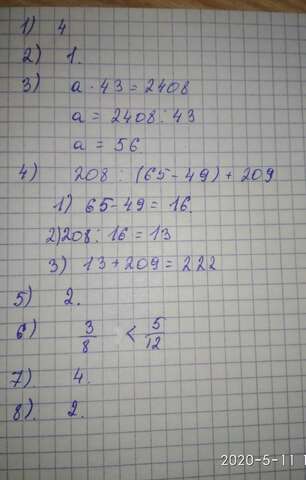 1) 4
2) 1.
3) a · 43 = 2408
a = 2408 : 43
a = 56.
4) 208 : (65 - 49) + 209
1) 65 - 49 = 16.
2) 208 : 16 = 13
3) 13 + 209 = 222
5) 2.
6) 3/8 < 5/12
7) 4.
8). 2.
2020-5-11 1